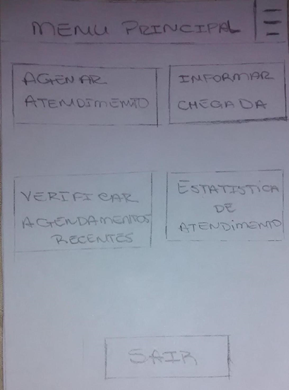 MENU PRINCIPAL
AGENAR
ATENDIMENTO
INFORMAR
CHEGADA
VERIFICAR
AGENDAMENTOS
RECENTES
ESTATISTICA
DE
ATENDIMENTO
SAIR